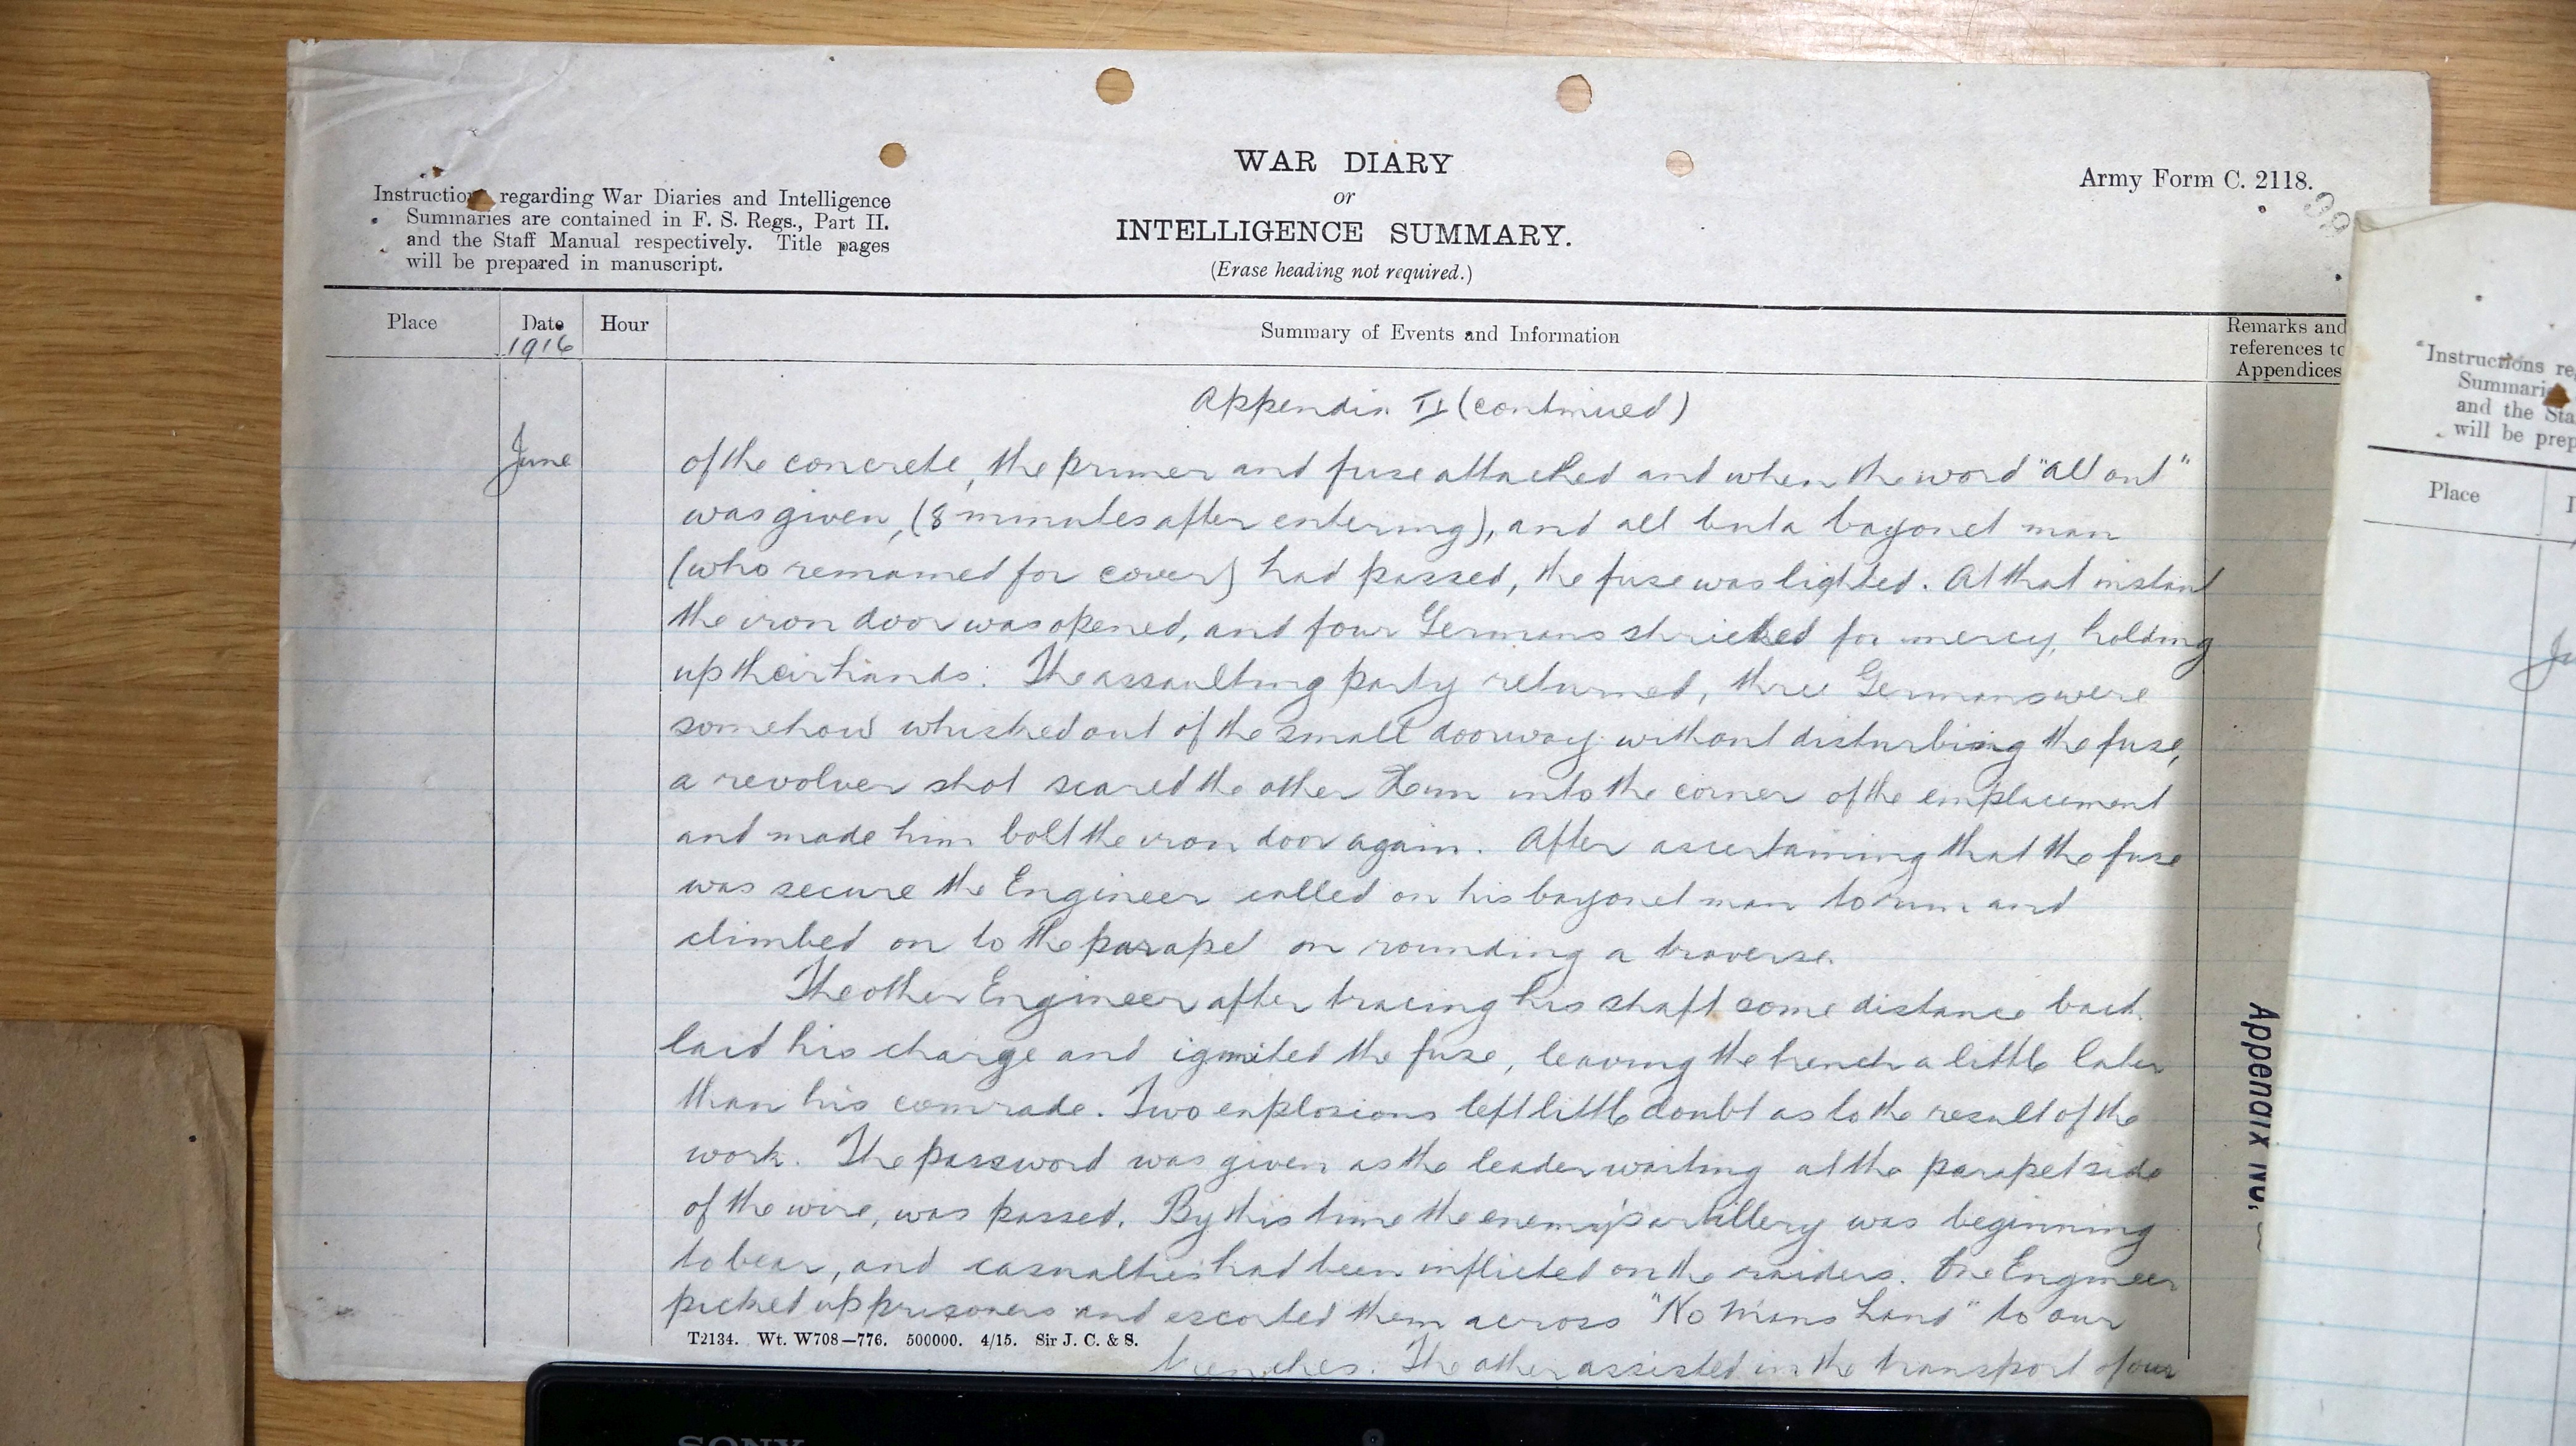 WAR DIARY
or
INTELLIGENCE SUMMARY.
(Erase heading not required.)
Army Form C. 2118.
Instructions regarding War Diaries and Intelligence
Summaries are contained in F. S. Regs., Part II.
and the Staff Manual respectively. Title pages
will be prepared in manuscript.
Place
Date
1916
Hour
Summary of Events and Information
Remarks and
references to
Appendices
Appendix II (continued)
June
of the concrete, the primer and fuse attached and when the word "all out"
was given, (8 minutes after entering), and all but a bayonet man
(who remained for cover) had passed, the fuse was lighted. At that instant
the iron door was opened, and four Germans shrieked for mercy, holding
up their hands. The assaulting party returned, three Germans were
somehow whisked out of the small doorway without disturbing the fuse,
a revolver shot scared the other Hun into the corner of the emplacement
and made him bolt the iron door again. After ascertaining that the fuse
was secure the Engineer called on his bayonet man to run and
climbed on to the parapet on rounding a traverse.
The other Engineer after tracing his shaft some distance back
laid his charge and ignited the fuse, leaving the trench a little later
than his comrade. Two explosions left little doubt as to the result of the
work. The password was given as the leader waiting at the parapet side
of the wire, was passed. By this time the enemy's artillery was beginning
to bear, and casualties had been inflicted on the raiders. One Engineer
picked up prisoners and escorted them across "No Mans Land" to our
trenches. The other assisted in the transport of our
T2134. Wt. W708—776. 500000. 4/15. Sir J. C. & S.
Appendix No.
Instructions re
Summari
and the Sta
will be prep
Place
Ju
SONY